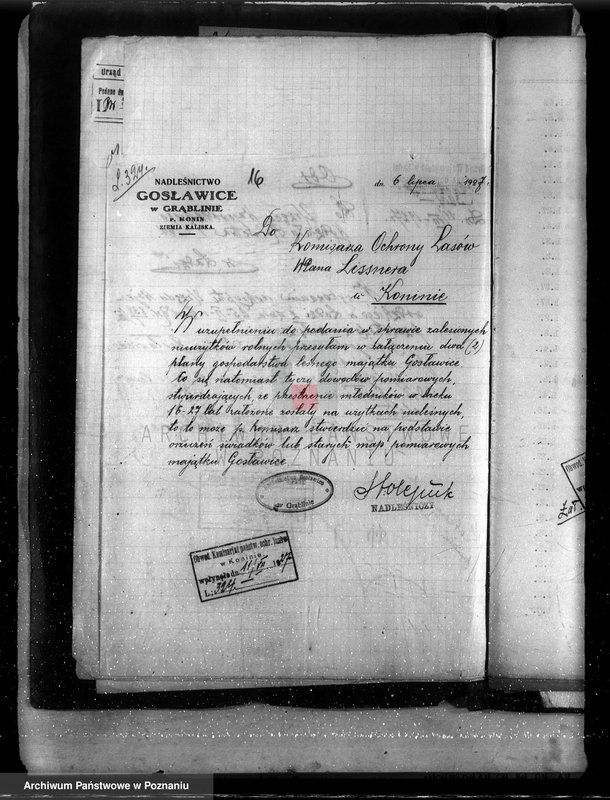 Urząd
Podano dn
L. 324.
16
NADLEŚNICTWO
GOSŁAWICE
w GRĄBLINIE
p. KONIN
ZIEMIA KALISKA.
dn. 6 lipca 1927.
Do
Komisarza Ochrony Lasów
WPana Lessnera
w Koninie
W uzupełnieniu do podania w sprawie zalesionych
nieużytków rolnych przesyłam w załączeniu dwa (2)
plany gospodarstwa leśnego majątku Gosławice
co się natomiast tyczy dowodów pomiarowych,
stwierdzających, że przestrzenie młodników w wieku
16-27 lat założone zostały na użytkach nieleśnych,
to to może p. Komisarz stwierdzić na podstawie
orzeczeń świadków lub starych map pomiarowych
majątku Gosławice
Nadleśnictwo Gosławice
w Grąblinie
NADLEŚNICZY
Obwod. Komisarjat państw. ochr. lasów
w Koninie
wpłynęło dn. 11/VII 1927
L: 324
ARCHIWUM PAŃSTWOWE
W POZNANIU
Archiwum Państwowe w Poznaniu